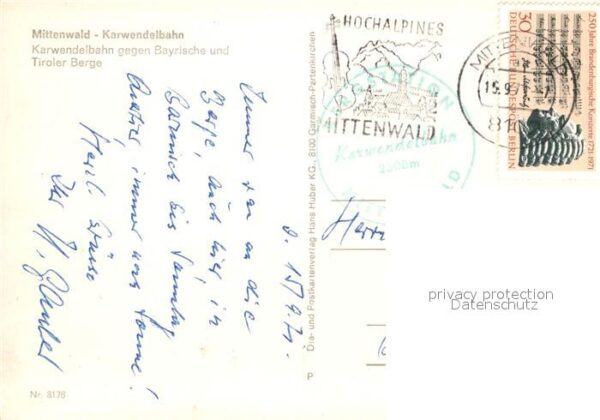 Mittenwald - Karwendelbahn
Karwendelbahn gegen Bayrische und
Tiroler Berge
d. 15.9.71.
Immer an die
Berge, auch hier, in
Garmisch bis Samstag
immer nur Sonne!
Herzl. Grüsse
Ihr
Nr. 8178
Dia- und Postkartenverlag Hans Huber KG., 8100 Garmisch-Partenkirchen
P
HOCHALPINES
MITTENWALD
Karwendelbahn
MITTENWALD
15.9.
810
250 Jahre Brandenburgische Konzerte 1721-1971
30
DEUTSCHE BUNDESPOST BERLIN
Herrn
privacy protection
Datenschutz